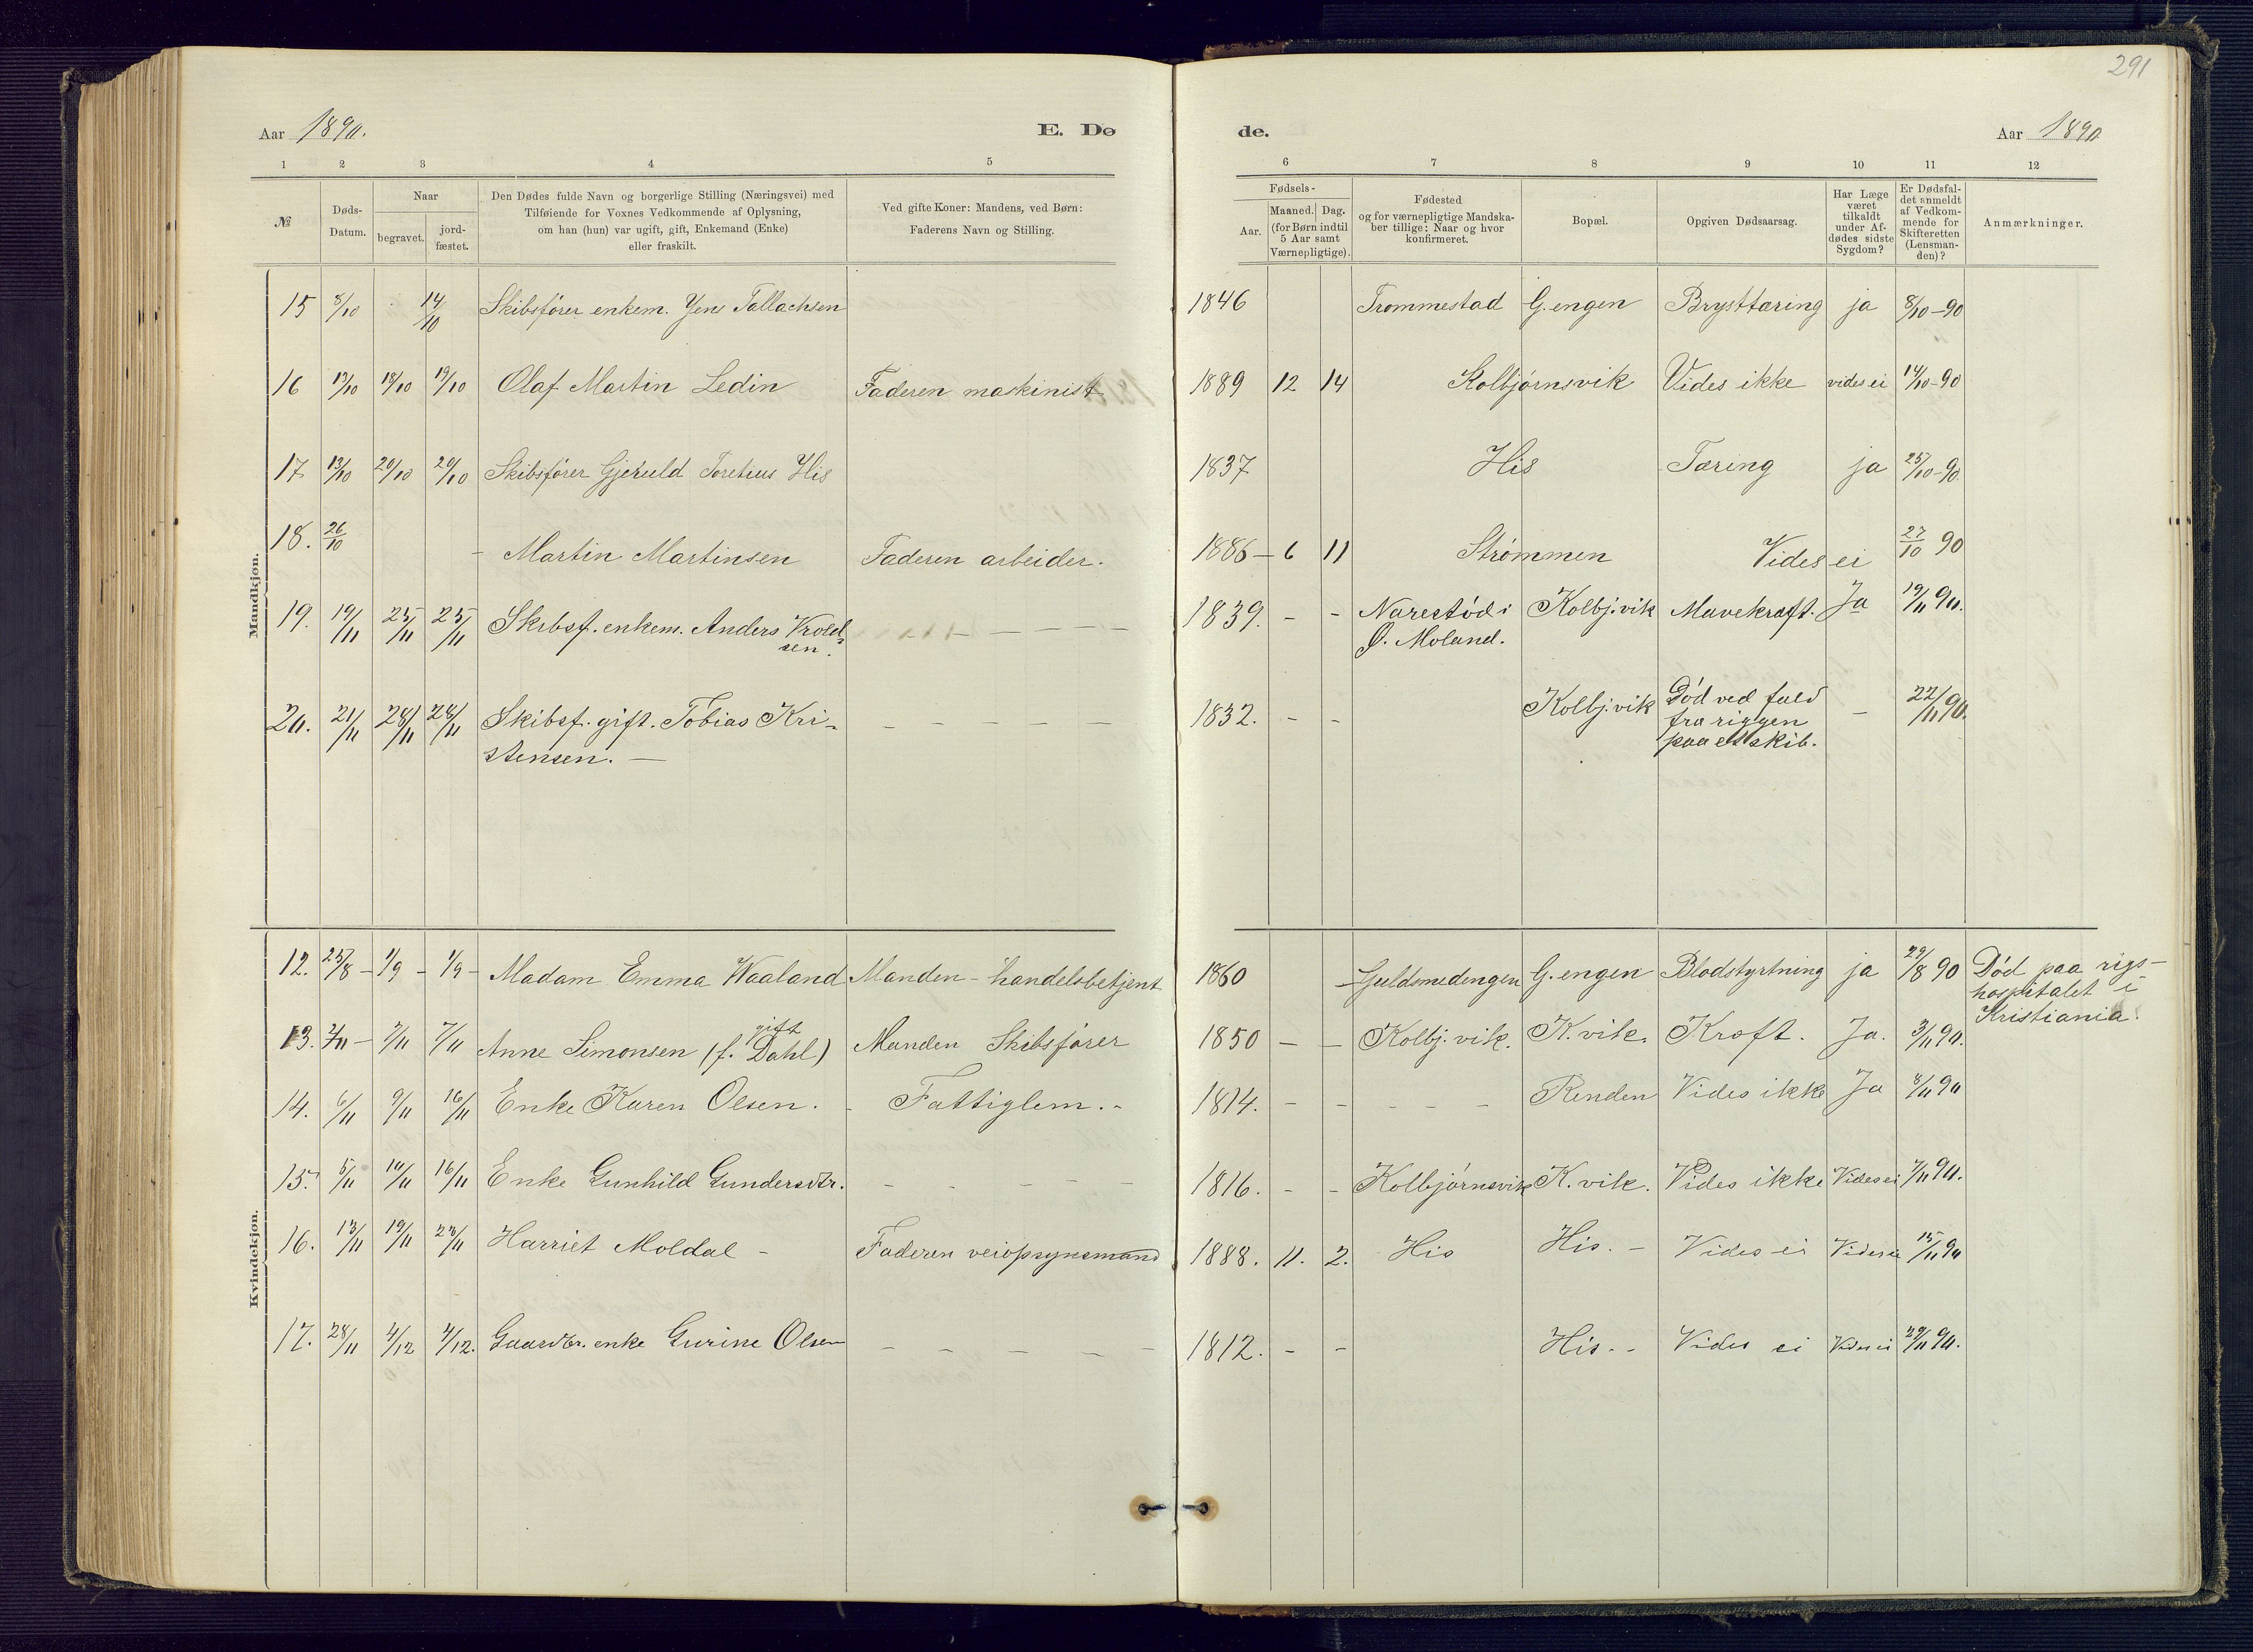 291
Aar 1890.
E. Dø
de.
Aar 1890
1 2 3 4 5 6 7 8 9 10 11 12
№
Døds-
Datum.
Naar
begravet.
jord-
fæstet.
Den Dødes fulde Navn og borgerlige Stilling (Næringsvei) med
Tilføiende for Voxnes Vedkommende af Oplysning,
om han (hun) var ugift, gift, Enkemand (Enke)
eller fraskilt.
Ved gifte Koner: Mandens, ved Børn:
Faderens Navn og Stilling.
Fødsels-
Aar.
Maaned. Dag.
(for Børn indtil
5 Aar samt
Værnepligtige).
Fødested
og for værnepligtige Mandska-
ber tillige: Naar og hvor
konfirmeret.
Bopæl.
Opgiven Dødsaarsag.
Har Læge
været
tilkaldt
under Af-
dødes sidste
Sygdom?
Er Dødsfal-
det anmeldt
af Vedkom-
mende for
Skifteretten
(Lensman-
den)?
Anmærkninger.
Mandkjøn.
15 8/10 14/10 Skibsfører enkem. Jens Tallachsen 1846 Trommestad G.engen Brysttæring ja 8/10-90
16 13/10 18/10 19/10 Olaf Martin Ledin Faderen maskinist 1889 12 14 Kolbjørnsvik Vides ikke vides ei 14/10-90
17 13/10 20/10 20/10 Skibsfører Gjeruld Toretius His 1837 His Tæring ja 25/10-90.
18. 26/10 - Martin Martinsen Faderen arbeider. 1886 - 6 11 Strømmen Vides ei 27/10 90
19. 19/11 25/11 25/11 Skibsf. enkem. Anders Vrolds- 1839. - - Narestød i Kolbj.vik Mavekræft. Ja 19/11 90.
sen. Ø. Moland.
20. 21/11 28/11 28/11 Skibsf. gift. Tobias Kri- 1832. - - Kolbj.vik Død ved fald - 22/11 90.
stensen. — fra riggen
paa et skib.
Kvindekjøn.
12. 25/8 - 1/9 - 1/9 - Madam Emma Waaland Manden - handelsbetjent 1860 - Guldsmedengen G.engen Blodstyrtning ja 29/8 90 Død paa rigs-
hospitalet i
Kristiania.
gift
13. 2/11 - 7/11 7/11 Anne Simonsen (f. Dahl) Manden Skibsfører 1850 - - Kolbj.vik. K.vik. Kræft. Ja. 3/11 90.
14. 6/11 9/11 16/11 Enke Karen Olsen. - Fattiglem. - 1814. - - - - - Renden Vides ikke Ja 8/11 90
15. 5/11 10/11 16/11 Enke Gunhild Gundersdtr. - - - - - 1816. - - Kolbjørnsvik K.vik. Vides ikke Vides ei 7/11 90.
16. 13/11 19/11 23/11 Harriet Moldal - Faderen veiopsynsmand 1888. 11. 2. His His. - Vides ei Vides ei 15/11 90
17. 28/11 4/12 4/12. Gaardbr. enke Gurine Olsen - - - - - 1812. - - His. - Vides ei Vides ei 29/11 90.